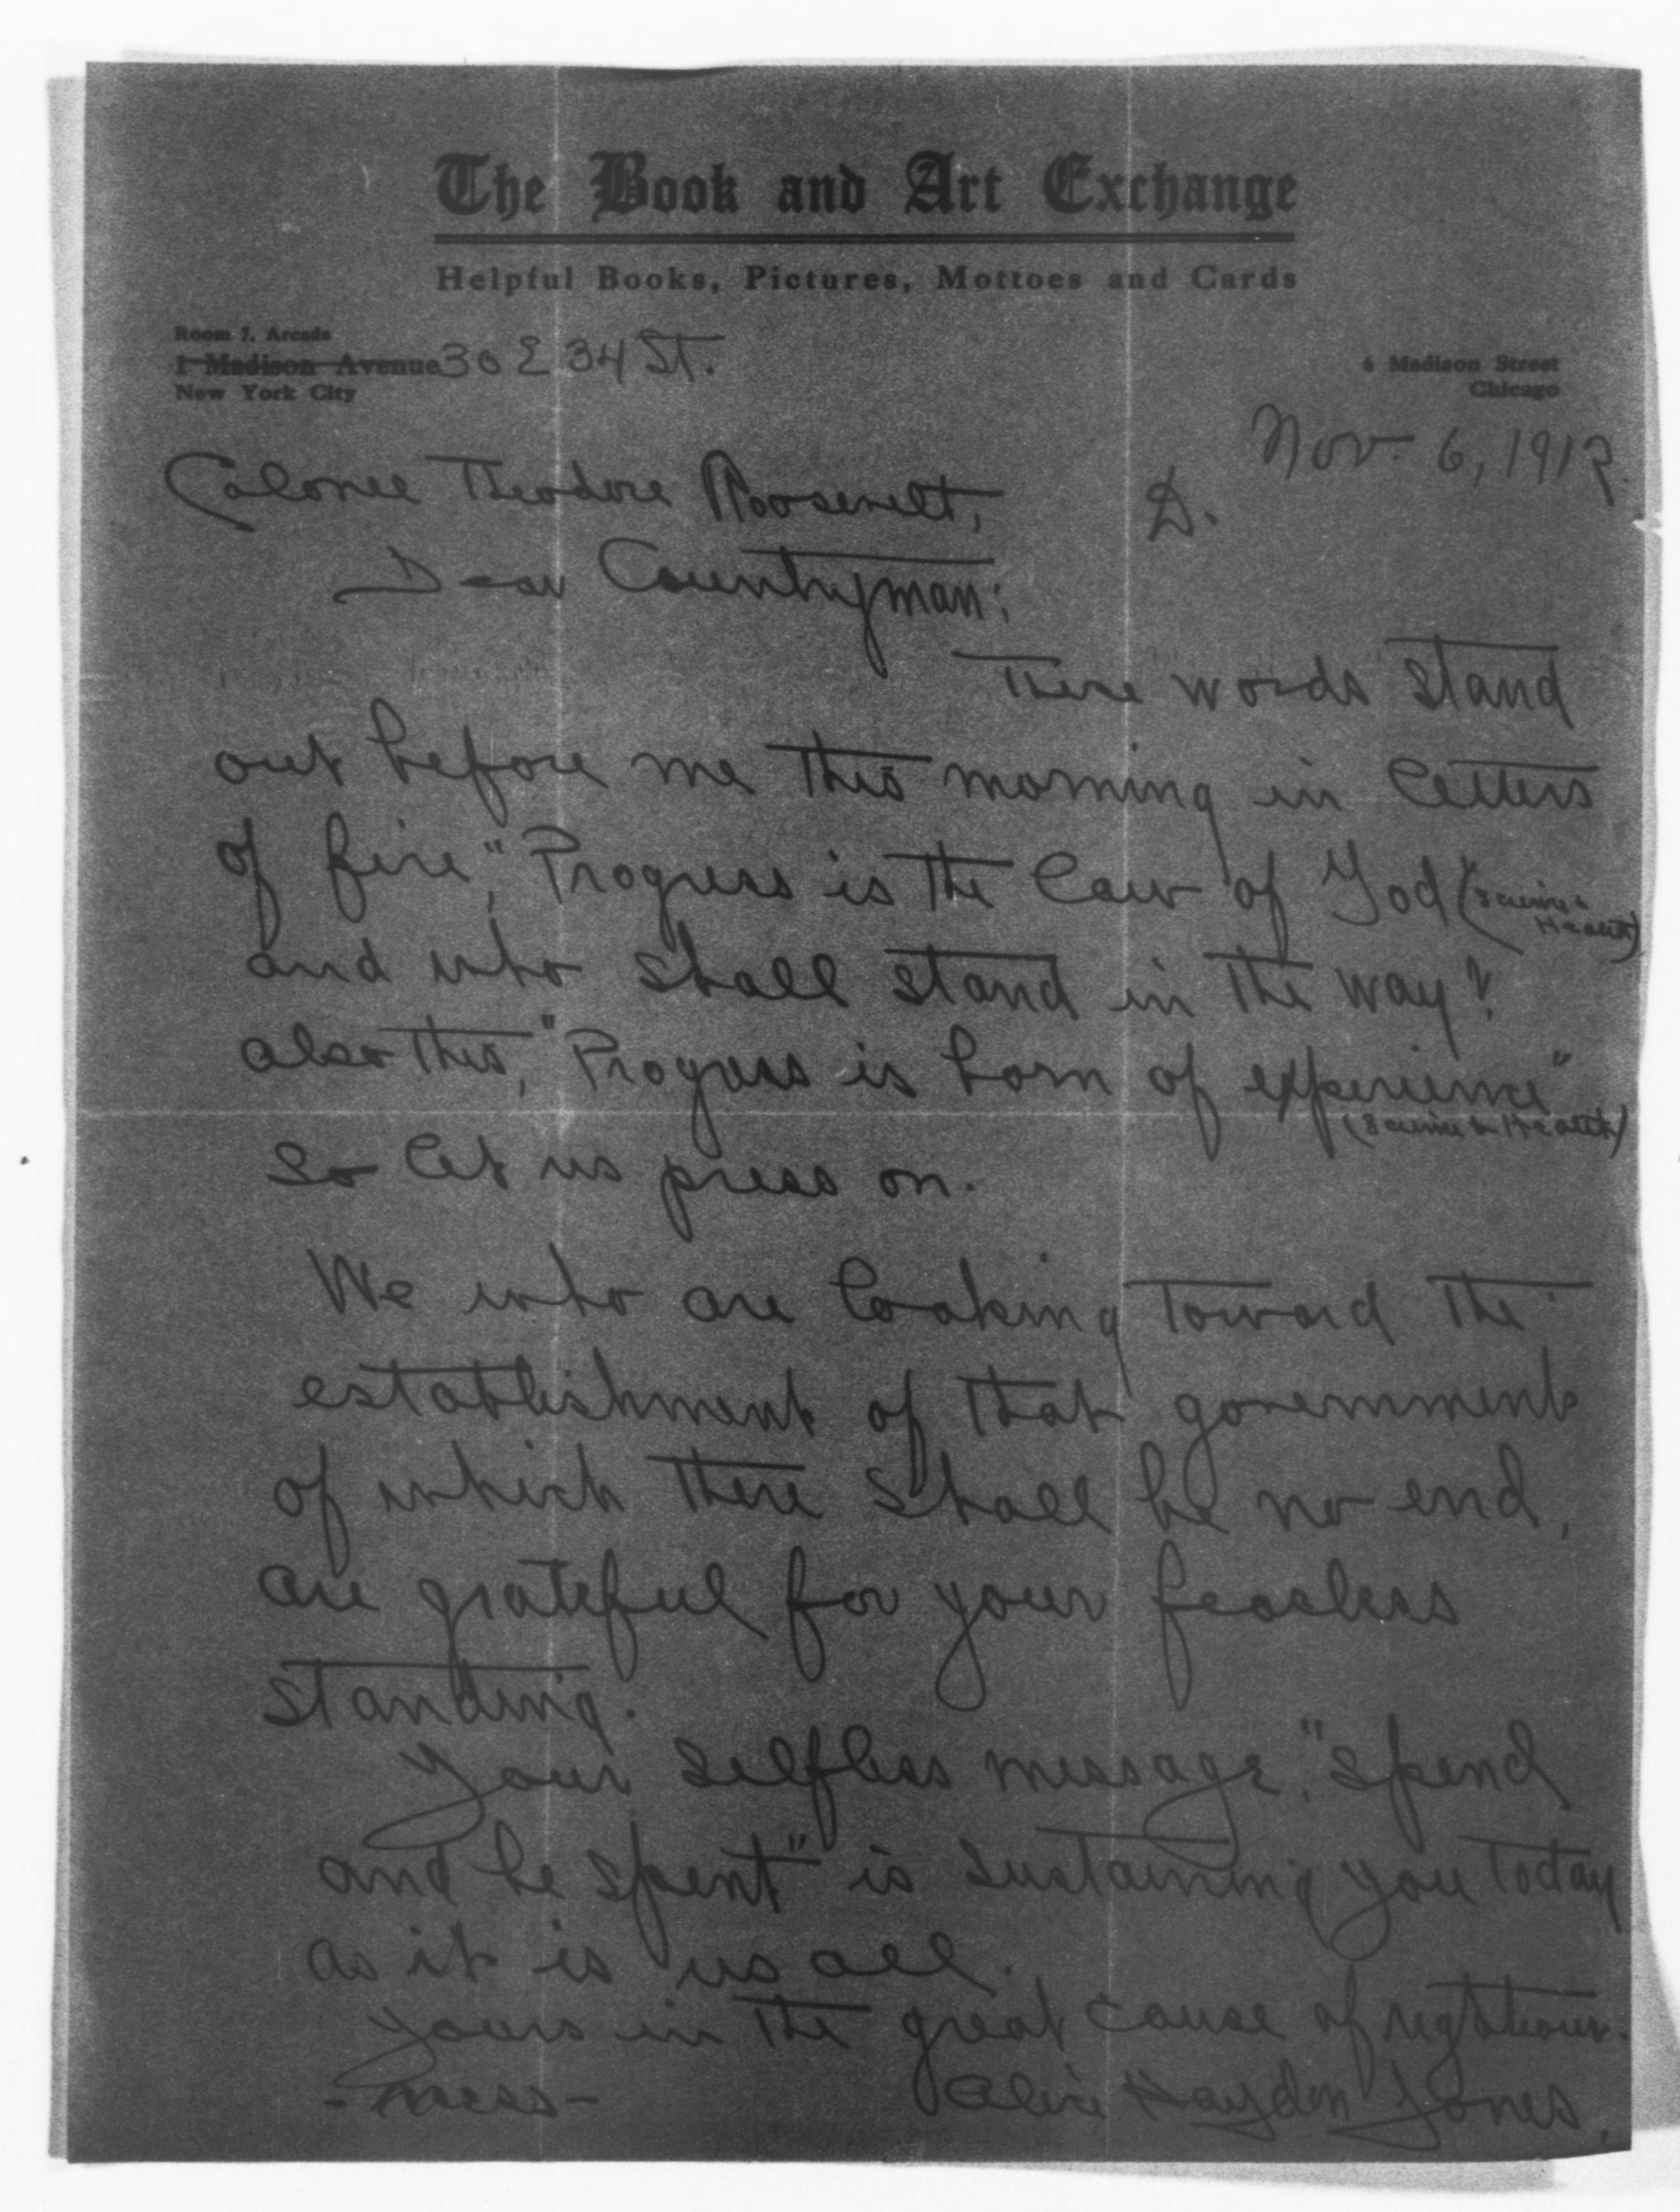 The Book and Art Exchange
Helpful Books, Pictures, Mottoes and Cards
Room 7, Arcade
1 Madison Avenue 30 E 34 St.
New York City
6 Madison Street
Chicago
Nov. 6, 1912.
Colonel Theodore Roosevelt,
D.
Dear Countryman:
These words stand
out before me this morning in letters
of fire, "Progress is the law of God (Science &
Health)
and who shall stand in the way?
also this, "Progress is born of experience"
(Science & Health)
So let us press on.
We who are looking toward the
establishment of that government
of which there shall be no end,
are grateful for your fearless
standing.
Your selfless message, "spend
and be spent" is sustaining you today
as it is us all.
Yours in the great cause of righteous-
-ness-
Alice Haydon Jones.